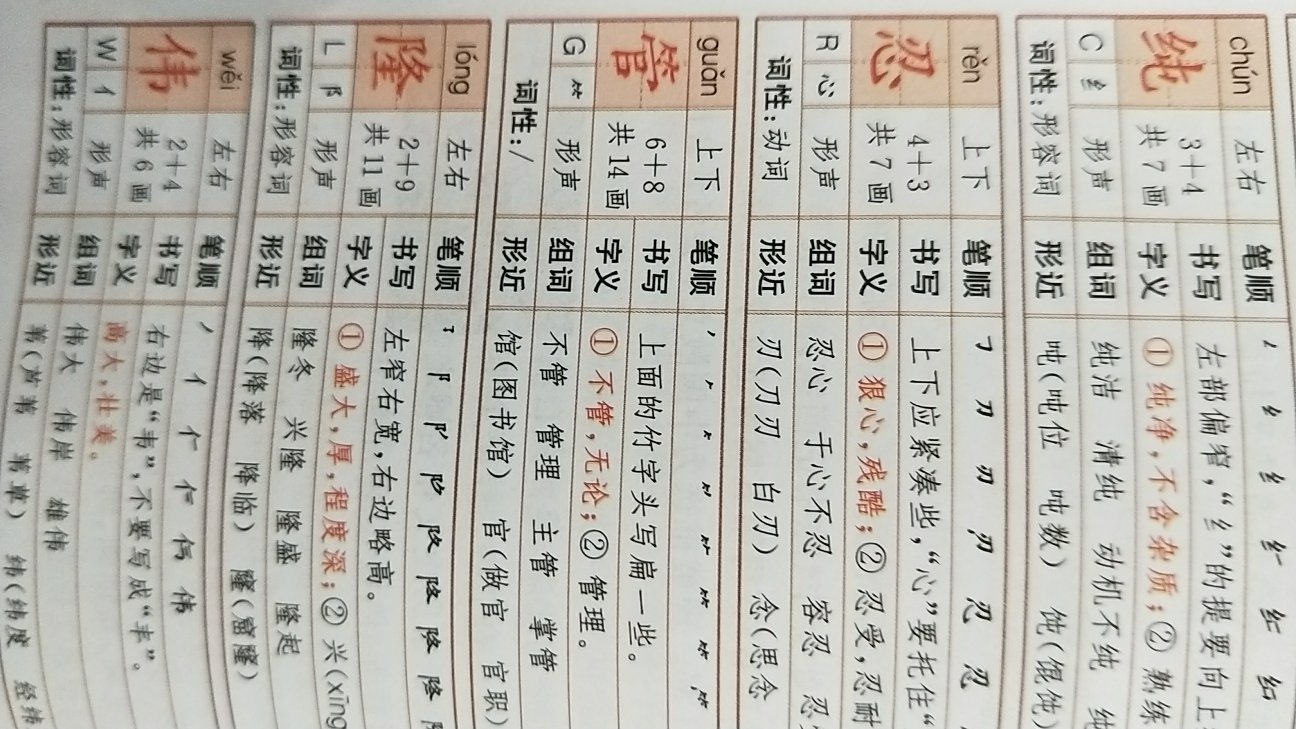 chún 纯 左右 3+4 共7画
C 纟 形声
词性:形容词
笔顺
书写 左部偏窄,“纟”的提要向上
字义 ①纯净,不含杂质;②熟练
组词 纯洁 清纯 动机不纯 纯
形近 吨(吨位 吨数) 饨(馄饨)
rěn 忍 上下 4+3 共7画
R 心 形声
词性:动词
笔顺 ㇆ 刀 刃 刃 忍 忍
书写 上下应紧凑些,“心”要托住“
字义 ①狠心,残酷;②忍受,忍耐
组词 忍心 于心不忍 容忍
形近 刃(刀刃 白刃) 念(思念
guǎn 管 上下 6+8 共14画
G ⺮ 形声
词性:/
笔顺
书写 上面的竹字头写扁一些。
字义 ①不管,无论;②管理。
组词 不管 管理 主管 掌管
形近 馆(图书馆) 官(做官 官职)
lóng 隆 左右 2+9 共11画
L 阝 形声
词性:形容词
笔顺
书写 左窄右宽,右边略高。
字义 ①盛大,厚,程度深;②兴(xīng
组词 隆冬 兴隆 隆盛 隆起
形近 降(降落 降临) 窿(窟窿)
wěi 伟 左右 2+4 共6画
W 亻 形声
词性:形容词
笔顺 丿 亻 仁 伟
书写 右边是“韦”,不要写成“丰”。
字义 高大,壮美。
组词 伟大 伟岸 雄伟
形近 苇(芦苇 苇草) 纬(纬度 经纬